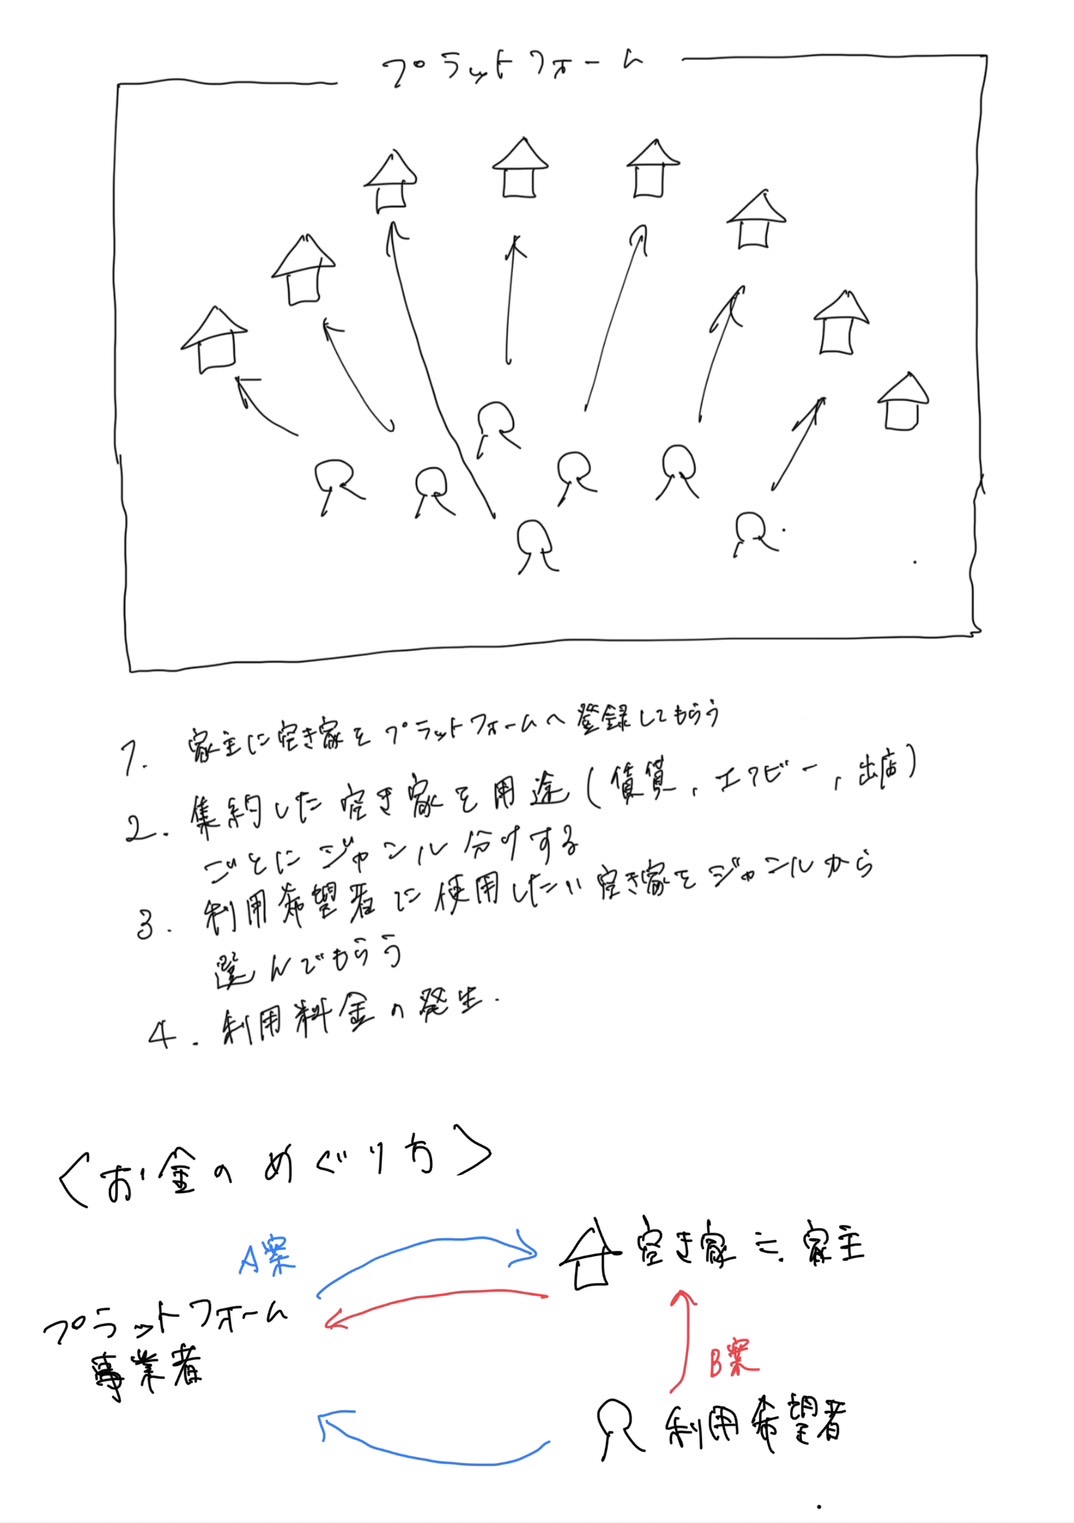 プラットフォーム
1. 家主に空き家をプラットフォームへ登録してもらう
2. 集約した空き家を用途(賃貸、エアビー、出店)
ごとにジャンル分けする
3. 利用希望者に使用したい空き家をジャンルから
選んでもらう
4. 利用料金の発生.
〈お金のめぐり方〉
A案
空き家≒家主
プラットフォーム
事業者
B案
利用希望者